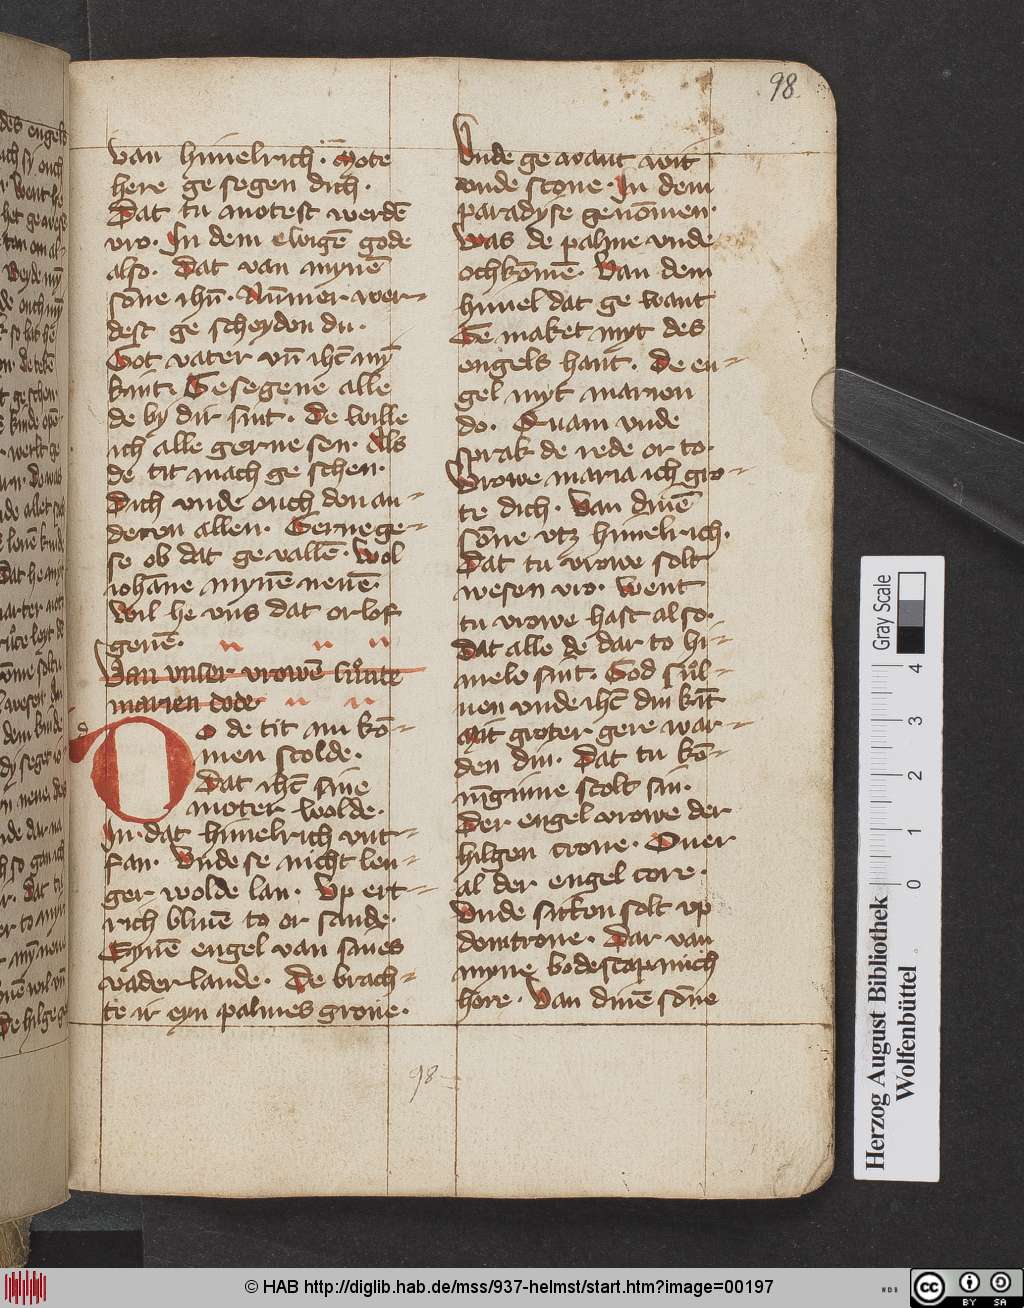 98
van himelrich. Mote
here ge segen dich.
Dat tu motest werdē
vro. In dem ewigē gode
also. Dat van mynē
sōne ihū. Nūmer wer-
dest ge scheyden du.
Got vater vn̄ ihc̄ mȳ
kint Gesegene alle
de by dir sint. De wille
ich alle gerne sen. Als
de tit mach ge schen.
Dich vnde ouch den an-
deren allen. Gerne ge-
se ob dat ge vallē. Wol
iohāne mynē neuē.
Wil he vns dat orlof
geuē.
Van vnser vrowē
marien dode
Do de tit nu kō-
men scolde.
Dat ihc̄ sine
moter wolde.
In dat himelrich vnt-
fan. Vnde se nicht len-
ger wolde lan. Vp ert-
rich bliuē to or sande.
Eynē engel van sines
vader lande. De brach-
te ir eyn palmes grone.
Vnde ge want wit
vnde scone. In dem
paradyse genōmen.
Was de palme vnde
och kōmē. Van dem
himel dat ge want
Ge maket myt des
engels hant. De en-
gel myt marien
do. Quam vnde
sprak de rede or to.
Vrowe maria ich gro-
te dich. Van dinē
sōne vtz himelrich.
Dat tu vrowe solt
wesen vro. Went
tu vrowe hast also.
Dat alle de dar to hi-
mele sint. God sūl-
uen vnde ihc̄ din kīt
Mit groter gere war-
den din. Dat tu kō-
nīginne scolt sin.
Der engel vrowe der
hilgen crone. Ouer
al der engel core.
Vnde sitken solt vp
dem trone. Dar van
myne bodescap mich
hore. Van dinē sōne
98
Herzog August Bibliothek
Wolfenbüttel
Gray Scale
0 1 2 3 4
© HAB http://diglib.hab.de/mss/937-helmst/start.htm?image=00197
WDB
cc BY SA